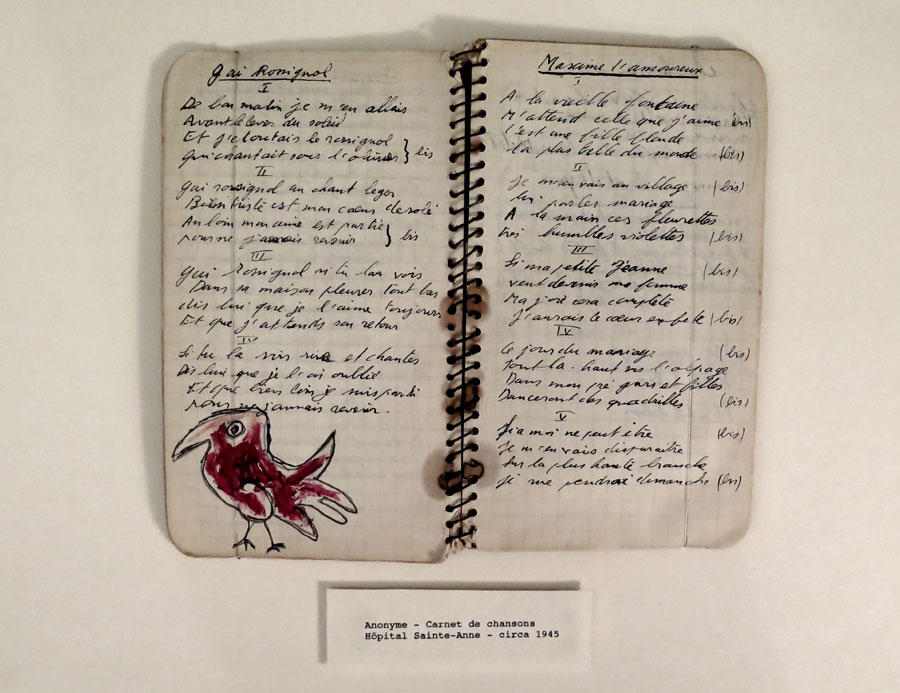 Gai Rossignol
I
De bon matin je m'en allais
Avant le lever du soleil
Et j'écoutais le rossignol
Qui chantait sous l'olivier } bis
II
Gai rossignol au chant léger
Bien triste est mon cœur désolé
Au loin mon amie est partie
pour ne jamais revenir } bis
III
Gai Rossignol si tu la vois
Dans sa maison pleurer tout bas
dis lui que je l'aime toujours
Et que j'attends son retour
IV
Si tu la vois rire et chanter
Dis lui que je l'ai oublié
Et que bien loin je suis parti
pour ne jamais revenir.
Maxime l'amoureux
I
A la vieille fontaine
M'attend celle que j'aime bis)
C'est une fille blonde
la plus belle du monde (bis)
II
Je m'en vais au village (bis)
lui parler mariage
A la main ces fleurettes
très humbles violettes (bis)
III
Si ma petite Jeanne (bis)
veut devenir ma femme
Ma joie sera complète
J'aurais le cœur en fête (bis)
IV
Le jour du mariage (bis)
Tout là-haut sur l'alpage
Dans mon pré gars et filles
Danceront des quadrilles (bis)
V
Si a moi ne peut être (bis)
Je m'en vais disparaître
Sur la plus haute branche
Je me pendrai dimanche (bis)
Anonyme - Carnet de chansons
Hôpital Sainte-Anne - circa 1945